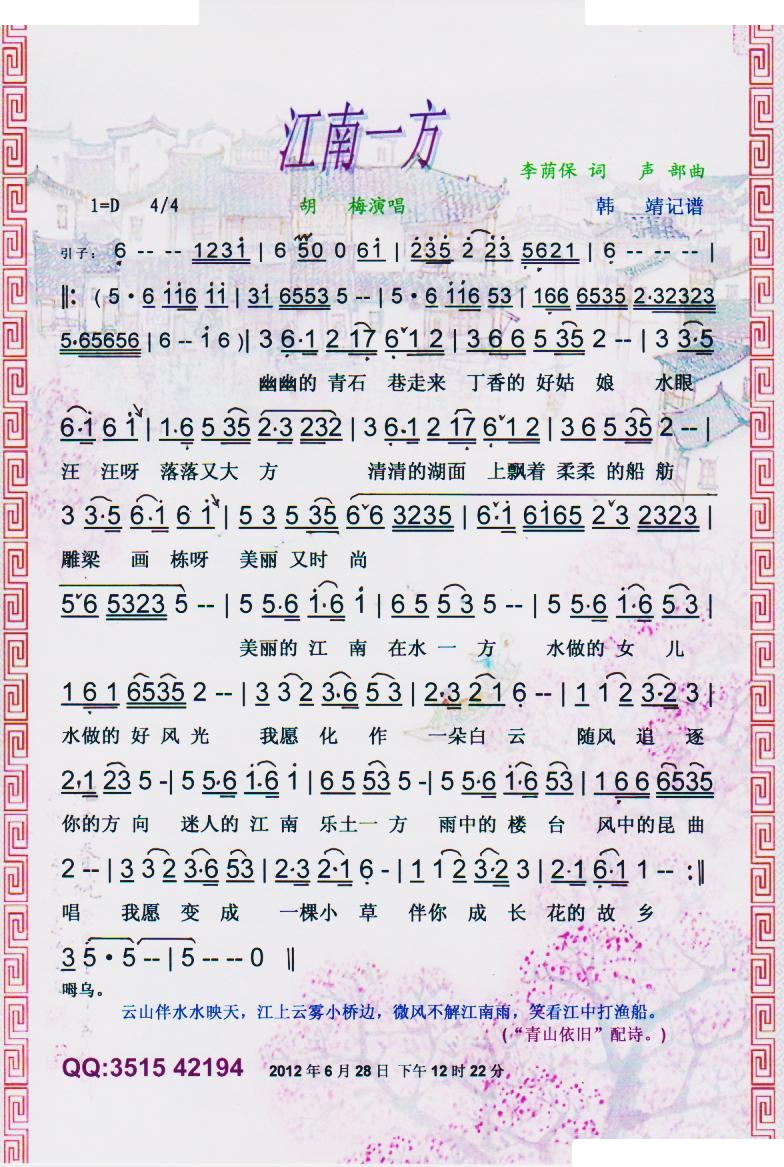 江南一方
李荫保 词 声 部曲
1=D 4/4 胡 梅演唱 韩 靖记谱
引子: 6 -- -- 1231 | 6 50 0 61 | 235 2 23 5621 | 6 -- -- -- |
‖: ( 5 · 6 116 11 | 31 6553 5 -- | 5 · 6 116 53 | 166 6535 2·32323
5·65656 | 6 -- 1 6 )| 3 6·1 2 17 6ˇ1 2 | 3 6 6 5 35 2 -- | 3 3·5
幽幽的 青石 巷走来 丁香的 好姑 娘 水眼
6·1 6 1 | 1·6 5 35 2·3 232 | 3 6·1 2 17 6ˇ1 2 | 3 6 5 35 2 -- |
汪 汪呀 落落又大 方 清清的湖面 上飘着 柔柔 的船 舫
3 3·5 6·1 6 1 | 5 3 5 35 6ˇ6 3235 | 6ˇ·1 6165 2ˇ3 2323 |
雕梁 画 栋呀 美丽 又时 尚
5ˇ6 5323 5 -- | 5 5·6 1·6 1 | 6 5 5 3 5 -- | 5 5·6 1·6 5 3 |
美丽的 江 南 在水 一 方 水做的 女 儿
1 6 1 6535 2 -- | 3 3 2 3·6 5 3 | 2·3 2 1 6 -- | 1 1 2 3·2 3 |
水做的 好 风 光 我愿 化 作 一朵白 云 随风 追 逐
2·1 23 5 -| 5 5·6 1·6 1 | 6 5 53 5 -| 5 5·6 1·6 53 | 1 6 6 6535
你的方 向 迷人的 江 南 乐土一 方 雨中的 楼 台 风中的昆 曲
2 -- | 3 3 2 3·6 53 | 2·3 2·1 6 - | 1 1 2 3·2 3 | 2·1 6·1 1 -- :‖
唱 我愿 变 成 一棵小 草 伴你 成 长 花的 故 乡
3 5 · 5 -- | 5 -- -- 0 ‖
呣乌。
云山伴水水映天，江上云雾小桥边，微风不解江南雨，笑看江中打渔船。
(“青山依旧”配诗。)
QQ:3515 42194 2012 年 6 月 28 日 下午 12 时 22 分